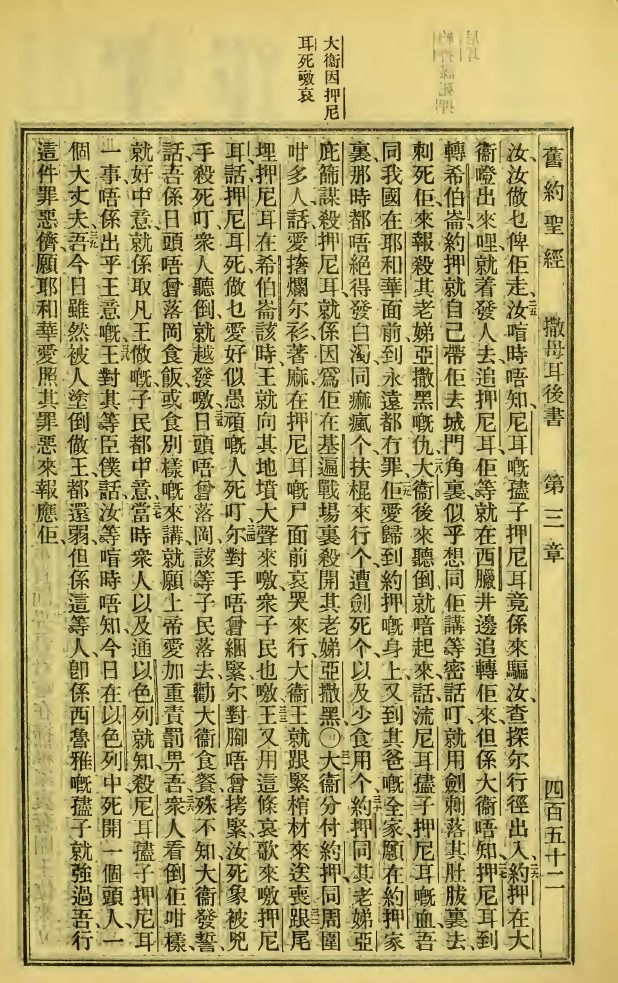 大衞因押尼
耳死噭哀
舊約聖經 撒母耳後書 第三章 四百五十二
汝汝做乜俾佢走、汝喧時唔知尼耳嘅孻子押尼耳竟係來騙汝查探尔行徑出入、約押在大
衞嶝出來哩就着發人去追押尼耳佢等就在西臘井邊追轉佢來但係大衞唔知、押尼耳到
轉希伯崙約押就自己帶佢去城門角裏似乎想同佢講等密話叮就用劍刺落其肚肢裏去、
刺死佢來報殺其老娣亞撒黑嘅仇、大衞後來聽倒就喑起來話流尼耳孻子押尼耳嘅血吾
同我國在耶和華面前到永遠都冇罪佢愛歸到約押嘅身上又到其爸嘅全家願在約押家
裏那時都唔絕得發白濁同痲瘋个扶棍來行个遭劍死个以及少食用个、約押同其老娣亞
庇篩謀殺押尼耳就係因爲佢在基遍戰場裏殺開其老娣亞撒黑〇大衞分付約押同周圍
咁多人話愛擼爛尔衫著麻在押尼耳嘅尸面前哀哭來行大衞王就跟緊棺材來送喪跟尾
埋押尼耳在希伯崙該時王就向其地墳大聲來噭衆子民也噭、王又用這條哀歌來噭押尼
耳話押尼耳死做乜愛好似愚頑嘅人死叮尔對手唔曾綑緊尔對腳唔曾拷緊汝死象被兇
手殺死叮衆人聽倒就越發噭、日頭唔曾落岡該等子民落去勸大衞食餐殊不知大衞發誓
話吾係日頭唔曾落岡食飯或食別樣嘅來講就願上帝愛加重責罰畀吾、衆人看倒佢咁樣
就好中意就係取凡王做嘅子民都中意、當時衆人以及通以色列就知殺尼耳孻子押尼耳
一事唔係出乎王意嘅、王對其等臣僕話汝等喧時唔知今日在以色列中死開一個頭人一
個大丈夫、吾今日雖然被人塗倒做王都還弱但係這等人、卽係西魯雅嘅孻子就強過吾行
這件罪惡儕願耶和華愛照其罪惡來報應佢、